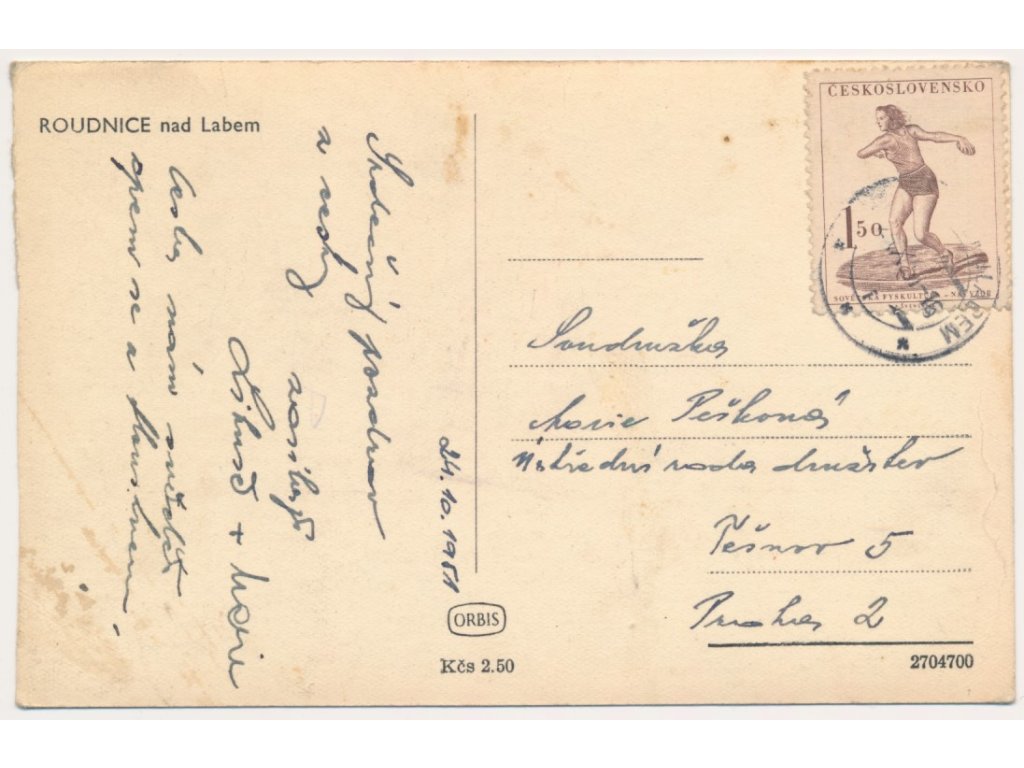 ROUDNICE nad Labem
Srdečný pozdrav
a vesky
zasílají
Libuš + Marie
nám
se a Musíme
24.10.1951
ORBIS
Kčs 2.50
ČESKOSLOVENSKO
1 50
SOVĚTSKÁ FYSKULTURA - NÁŠ VZOR
LABEM
Soudružka
Marie Pešková
Ústřední rada družstev
Těšnov 5
Praha 2
2704700